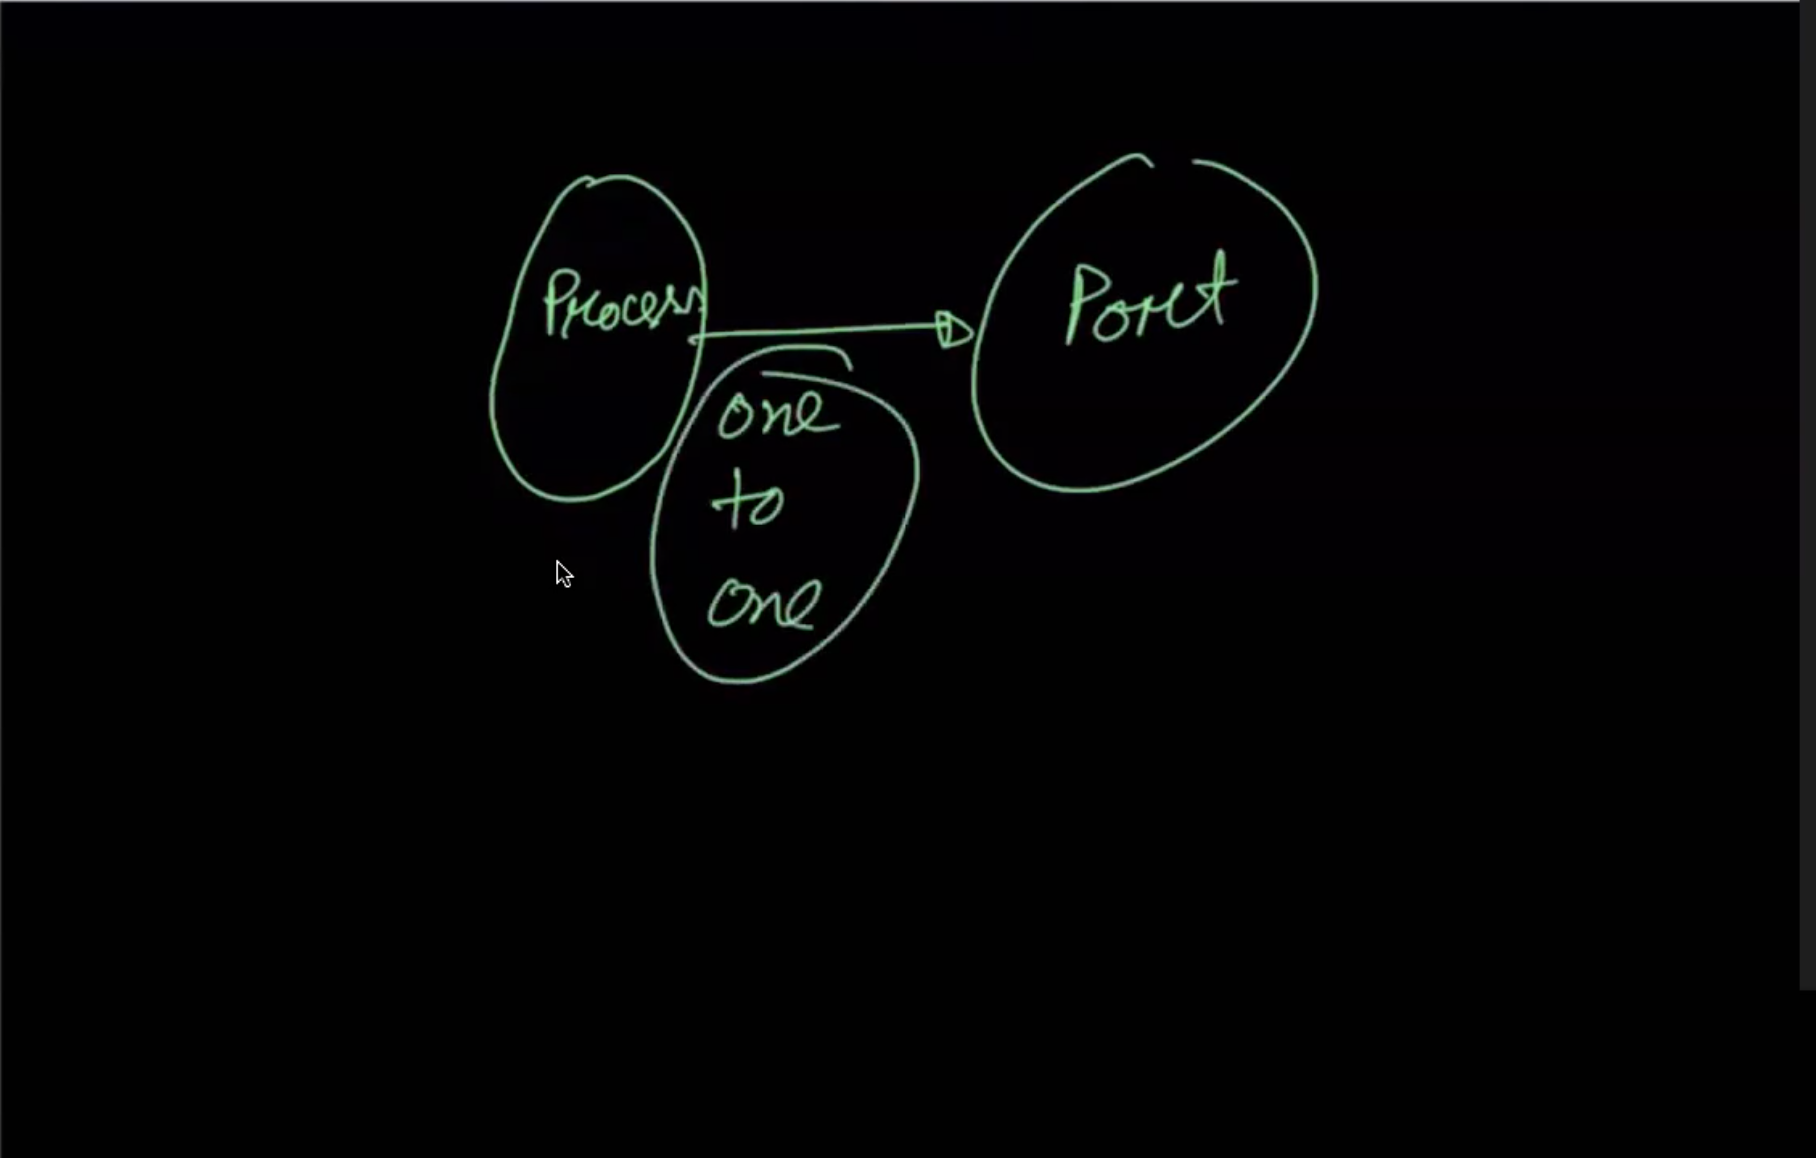 Process
Port
one
to
one